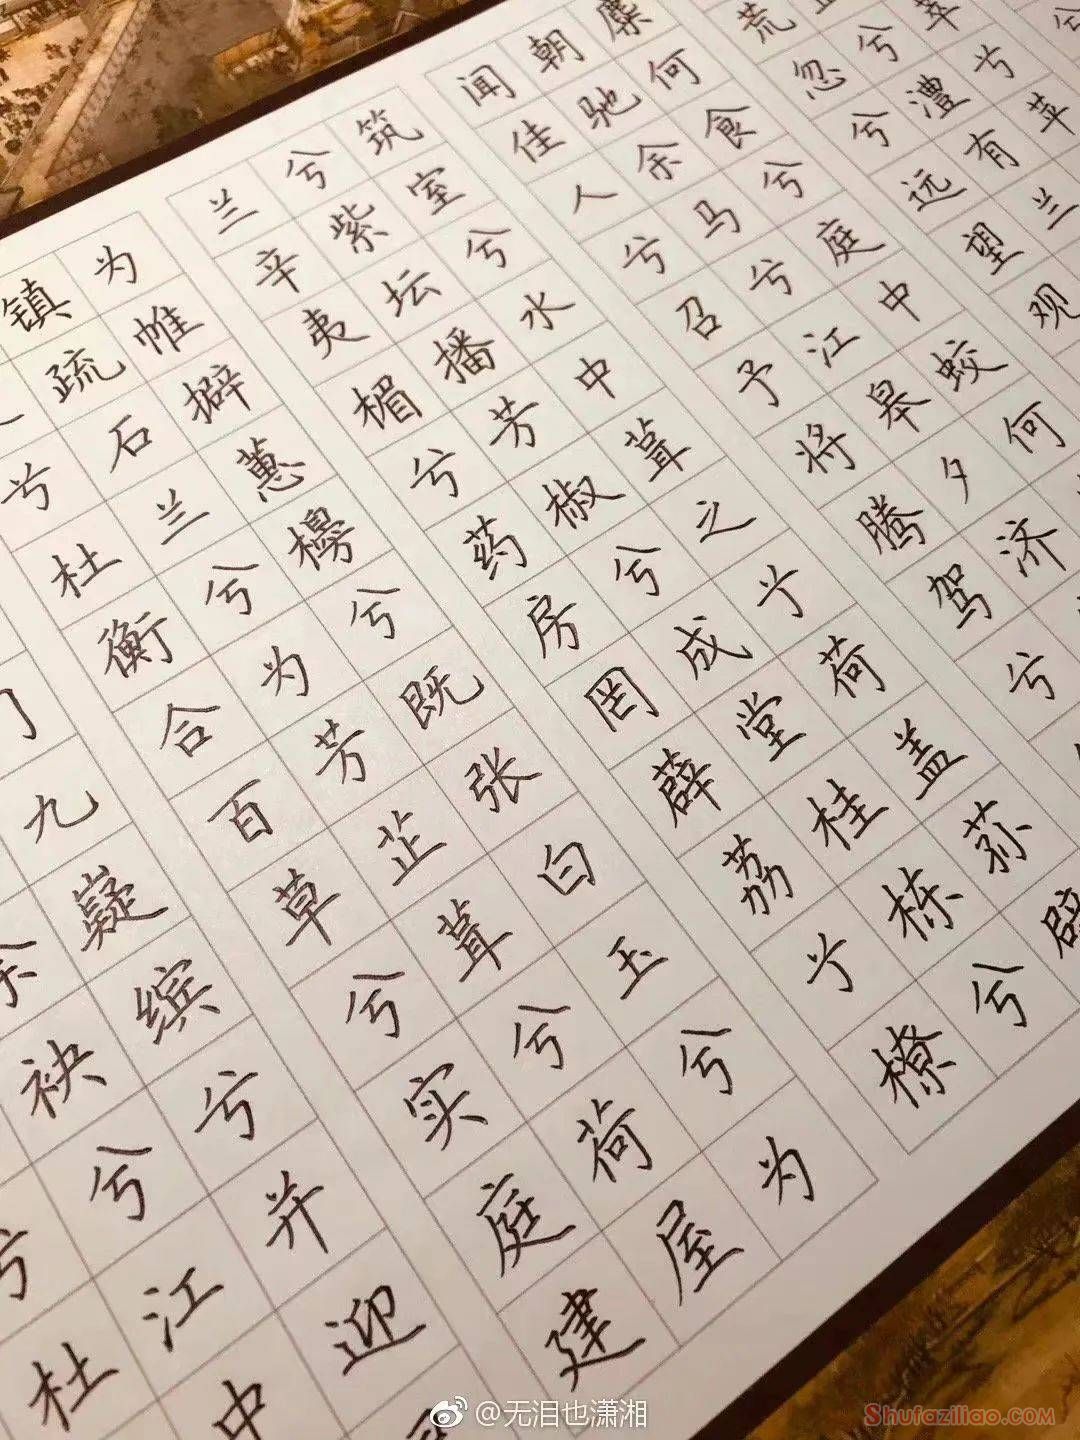 兮
萃兮苹
兮澧有兰
荒忽兮远望观
麋何食兮庭中蛟何
朝驰余马兮江皋夕济兮
闻佳人兮召予将腾驾兮
筑室兮水中葺之兮荷盖荪辟
兮紫坛播芳椒兮成堂桂栋兮
兰辛夷楣兮药房罔薜荔兮橑
为帷擗蕙櫋兮既张白玉兮为
镇疏石兰兮为芳芷葺兮荷屋
兮杜衡合百草兮实庭建
门九嶷缤兮并迎
余袂兮江中
兮杜
@无泪也潇湘
Shufaziliao.com